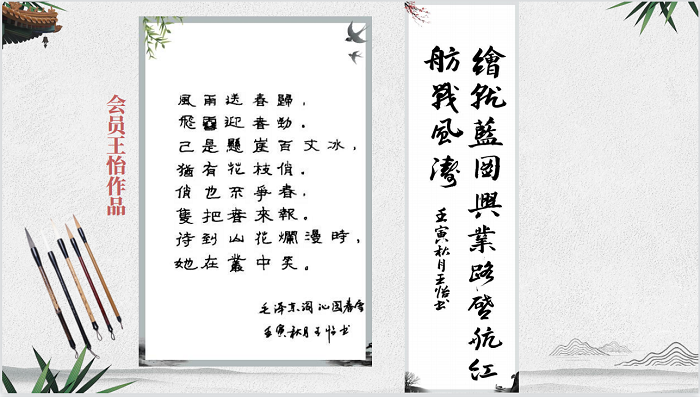 会员王怡作品
風雨送春歸，
飛雪迎春到。
己是懸崖百丈冰，
猶有花枝俏。
俏也不爭春，
隻把春來報。
待到山花爛漫時，
她在叢中笑。
毛泽东词沁园春雪
壬寅秋月王怡书
繪就藍圖興業路啓航紅
舫戰風濤
壬寅秋月王怡书